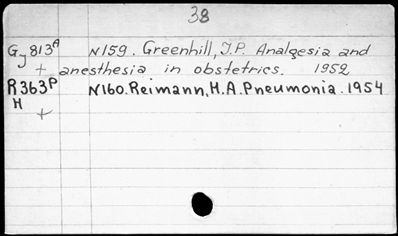 38
G 813ᵃ N159. Greenhill, J.P. Analgesia and
J + anesthesia in obstetrics. 1952
R363ᴾ N160. Reimann, H.A. Pneumonia. 1954
H
+